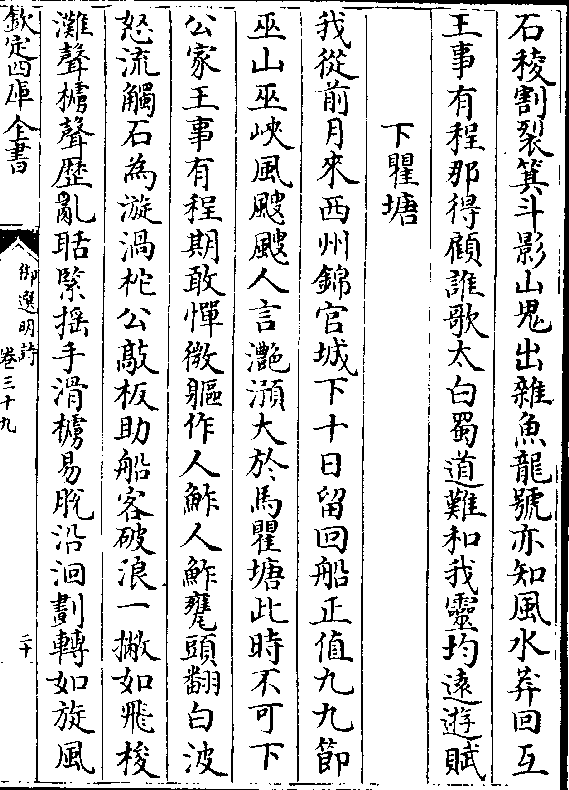 石稜割裂箕斗影山鬼出雜魚龍號亦知風水莽回互
王事有程那得顧誰歌太白蜀道難和我靈均遠遊賦
下瞿塘
我從前月來西州錦官城下十日留回船正值九九節
巫山巫峽風颼颼人言灔澦大於馬瞿塘此時不可下
公家王事有程期敢憚微軀作人鮓人鮓甕頭翻白波
怒流觸石為漩渦柁公敲板助船客破浪一撇如飛梭
灘聲櫓聲歴亂聒緊搖手滑櫓易脫沿洄劃轉如旋風
欽定四庫全書
御選明詩
卷三十九
二十